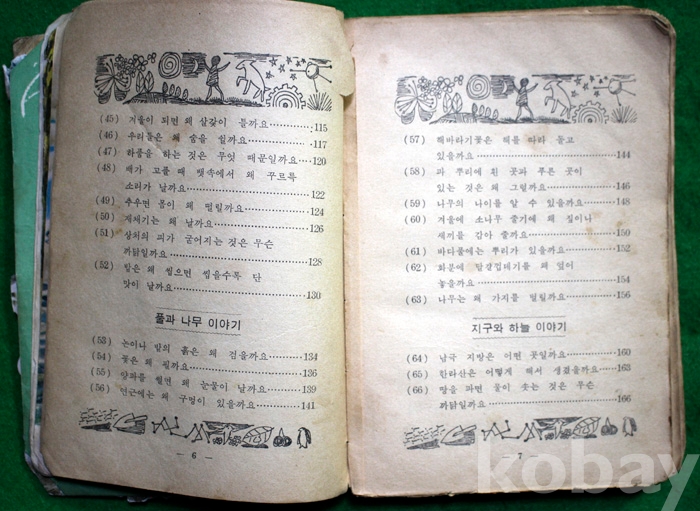 (45) 겨울이 되면 왜 살갗이 틀까요 115
(46) 우리들은 왜 숨을 쉴까요 117
(47) 하품을 하는 것은 무엇 때문일까요 120
(48) 배가 고플 때 뱃속에서 왜 꾸르륵
소리가 날까요 122
(49) 추우면 몸이 왜 떨릴까요 124
(50) 재채기는 왜 날까요 126
(51) 상처의 피가 굳어지는 것은 무슨
까닭일까요 128
(52) 밥은 왜 씹으면 씹을수록 단
맛이 날까요 130
풀과 나무 이야기
(53) 논이나 밭의 흙은 왜 검을까요 134
(54) 꽃은 왜 필까요 136
(55) 양파를 썰면 왜 눈물이 날까요 139
(56) 연근에는 왜 구멍이 있을까요 141
— 6 —
(57) 해바라기꽃은 해를 따라 돌고
있을까요 144
(58) 파 뿌리에 흰 곳과 푸른 곳이
있는 것은 왜 그럴까요 146
(59) 나무의 나이를 알 수 있을까요 148
(60) 겨울에 소나무 줄기에 왜 짚이나
새끼를 감아 줄까요 150
(61) 바다풀에는 뿌리가 있을까요 152
(62) 화분에 달걀껍데기를 왜 엎어
놓을까요 154
(63) 나무는 왜 가지를 벌릴까요 156
지구와 하늘 이야기
(64) 남극 지방은 어떤 곳일까요 160
(65) 한라산은 어떻게 해서 생겼을까요 163
(66) 땅을 파면 물이 솟는 것은 무슨
까닭일까요 166
— 7 —
kobay